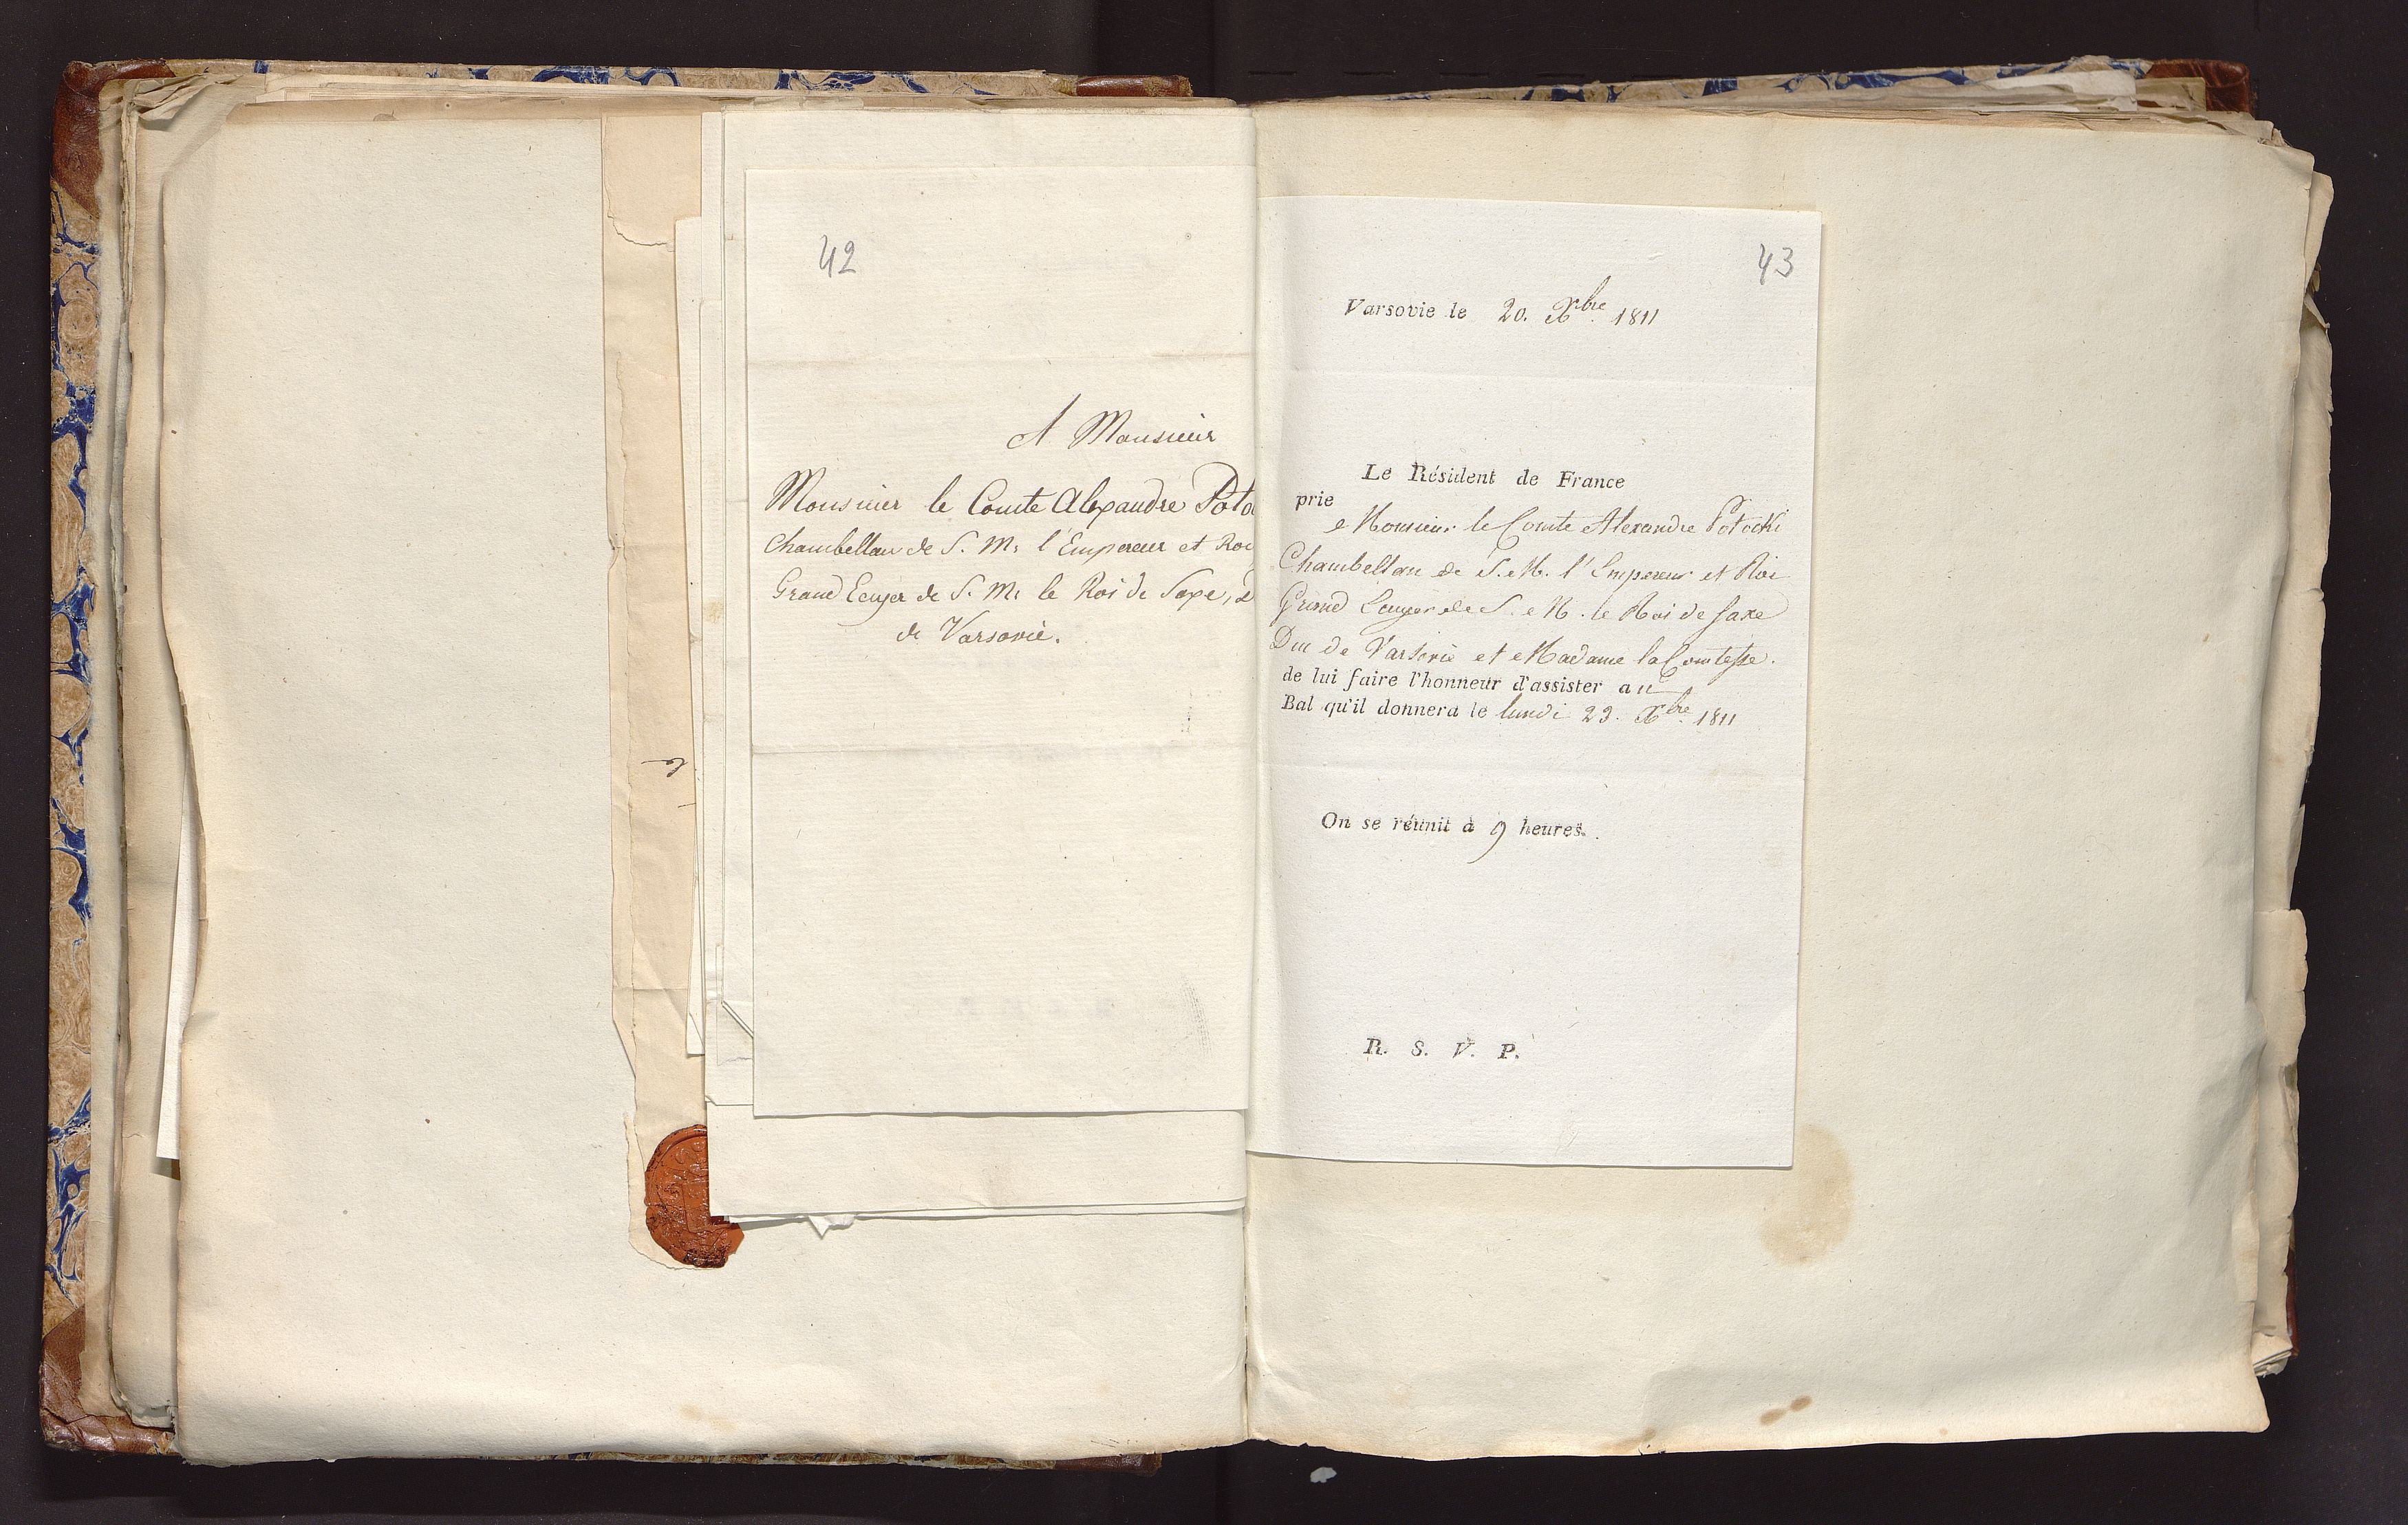 42
A Monsieur
Monsieur le Comte Alexandre Poto
Chambellan de S. M. l'Empereur et Roi
Grand Ecuyer de S. M. le Roi de Saxe, D
de Varsovie.
le
43
Varsovie le 20. Xbre 1811
Le Résident de France
prie
Monsieur le Comte Alexandre Potocki
Chambellan de S. M. l'Empereur et Roi
Grand Ecuyer de S. M. le Roi de Saxe
Duc de Varsovie et Madame la Comtesse.
de lui faire l'honneur d'assister au
Bal qu'il donnera le lundi 23. Xbre 1811
On se réunit à 9 heures.
R. S. V. P.